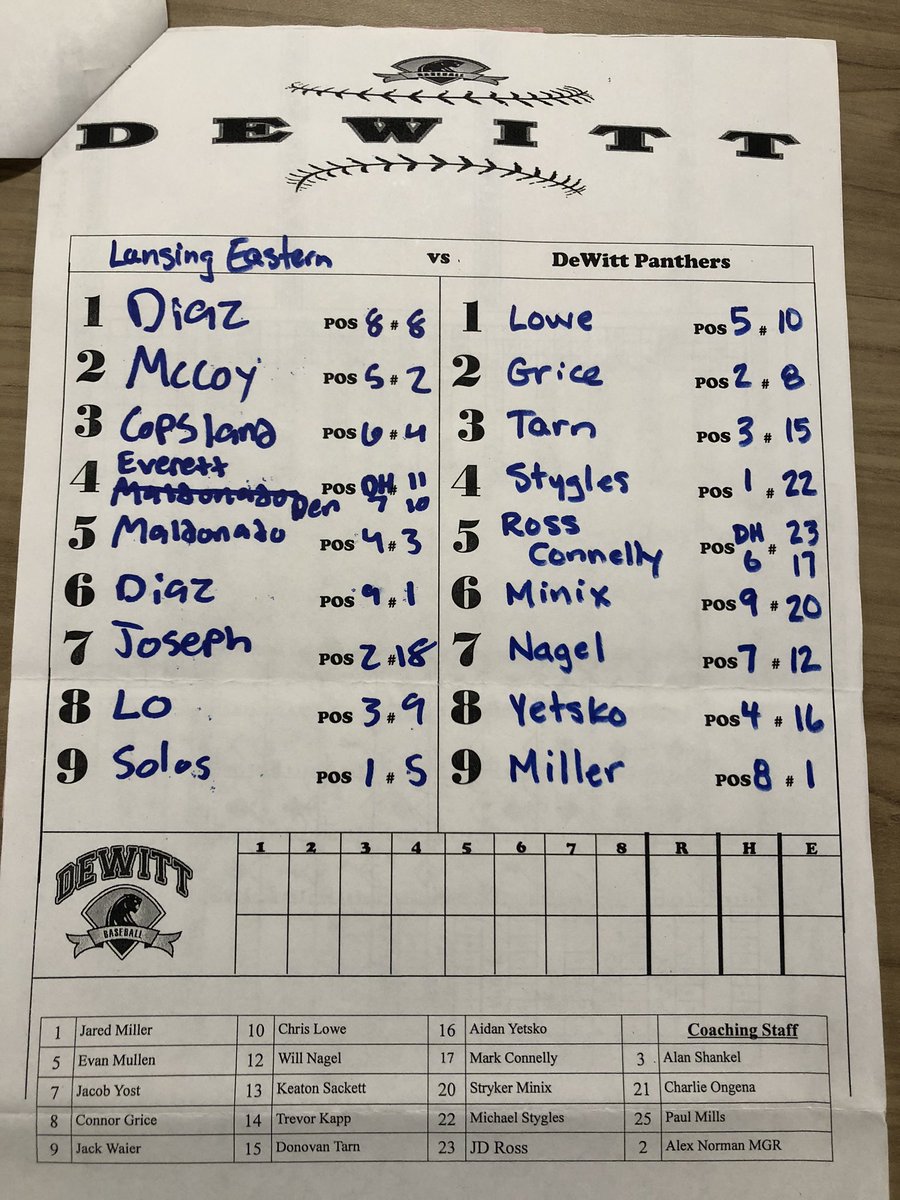 BASEBALL
DEWITT
Lansing Eastern vs. DeWitt Panthers
1 Diaz POS 8 # 8
2 McCoy POS 5 # 2
3 Copsland POS 6 # 4
4 Everett POS DH # 11
Maldonado Den 7 10
5 Maldonado POS 4 # 3
6 Diaz POS 9 # 1
7 Joseph POS 2 # 18
8 Lo POS 3 # 9
9 Solos POS 1 # 5
1 Lowe POS 5 # 10
2 Grice POS 2 # 8
3 Tarn POS 3 # 15
4 Stygles POS 1 # 22
5 Ross POS DH # 23
Connelly 6 17
6 Minix POS 9 # 20
7 Nagel POS 7 # 12
8 Yetsko POS 4 # 16
9 Miller POS 8 # 1
DEWITT
BASEBALL
1 2 3 4 5 6 7 8 R H E
1 Jared Miller 10 Chris Lowe 16 Aidan Yetsko Coaching Staff
5 Evan Mullen 12 Will Nagel 17 Mark Connelly 3 Alan Shankel
7 Jacob Yost 13 Keaton Sackett 20 Stryker Minix 21 Charlie Ongena
8 Connor Grice 14 Trevor Kapp 22 Michael Stygles 25 Paul Mills
9 Jack Waier 15 Donovan Tarn 23 JD Ross 2 Alex Norman MGR